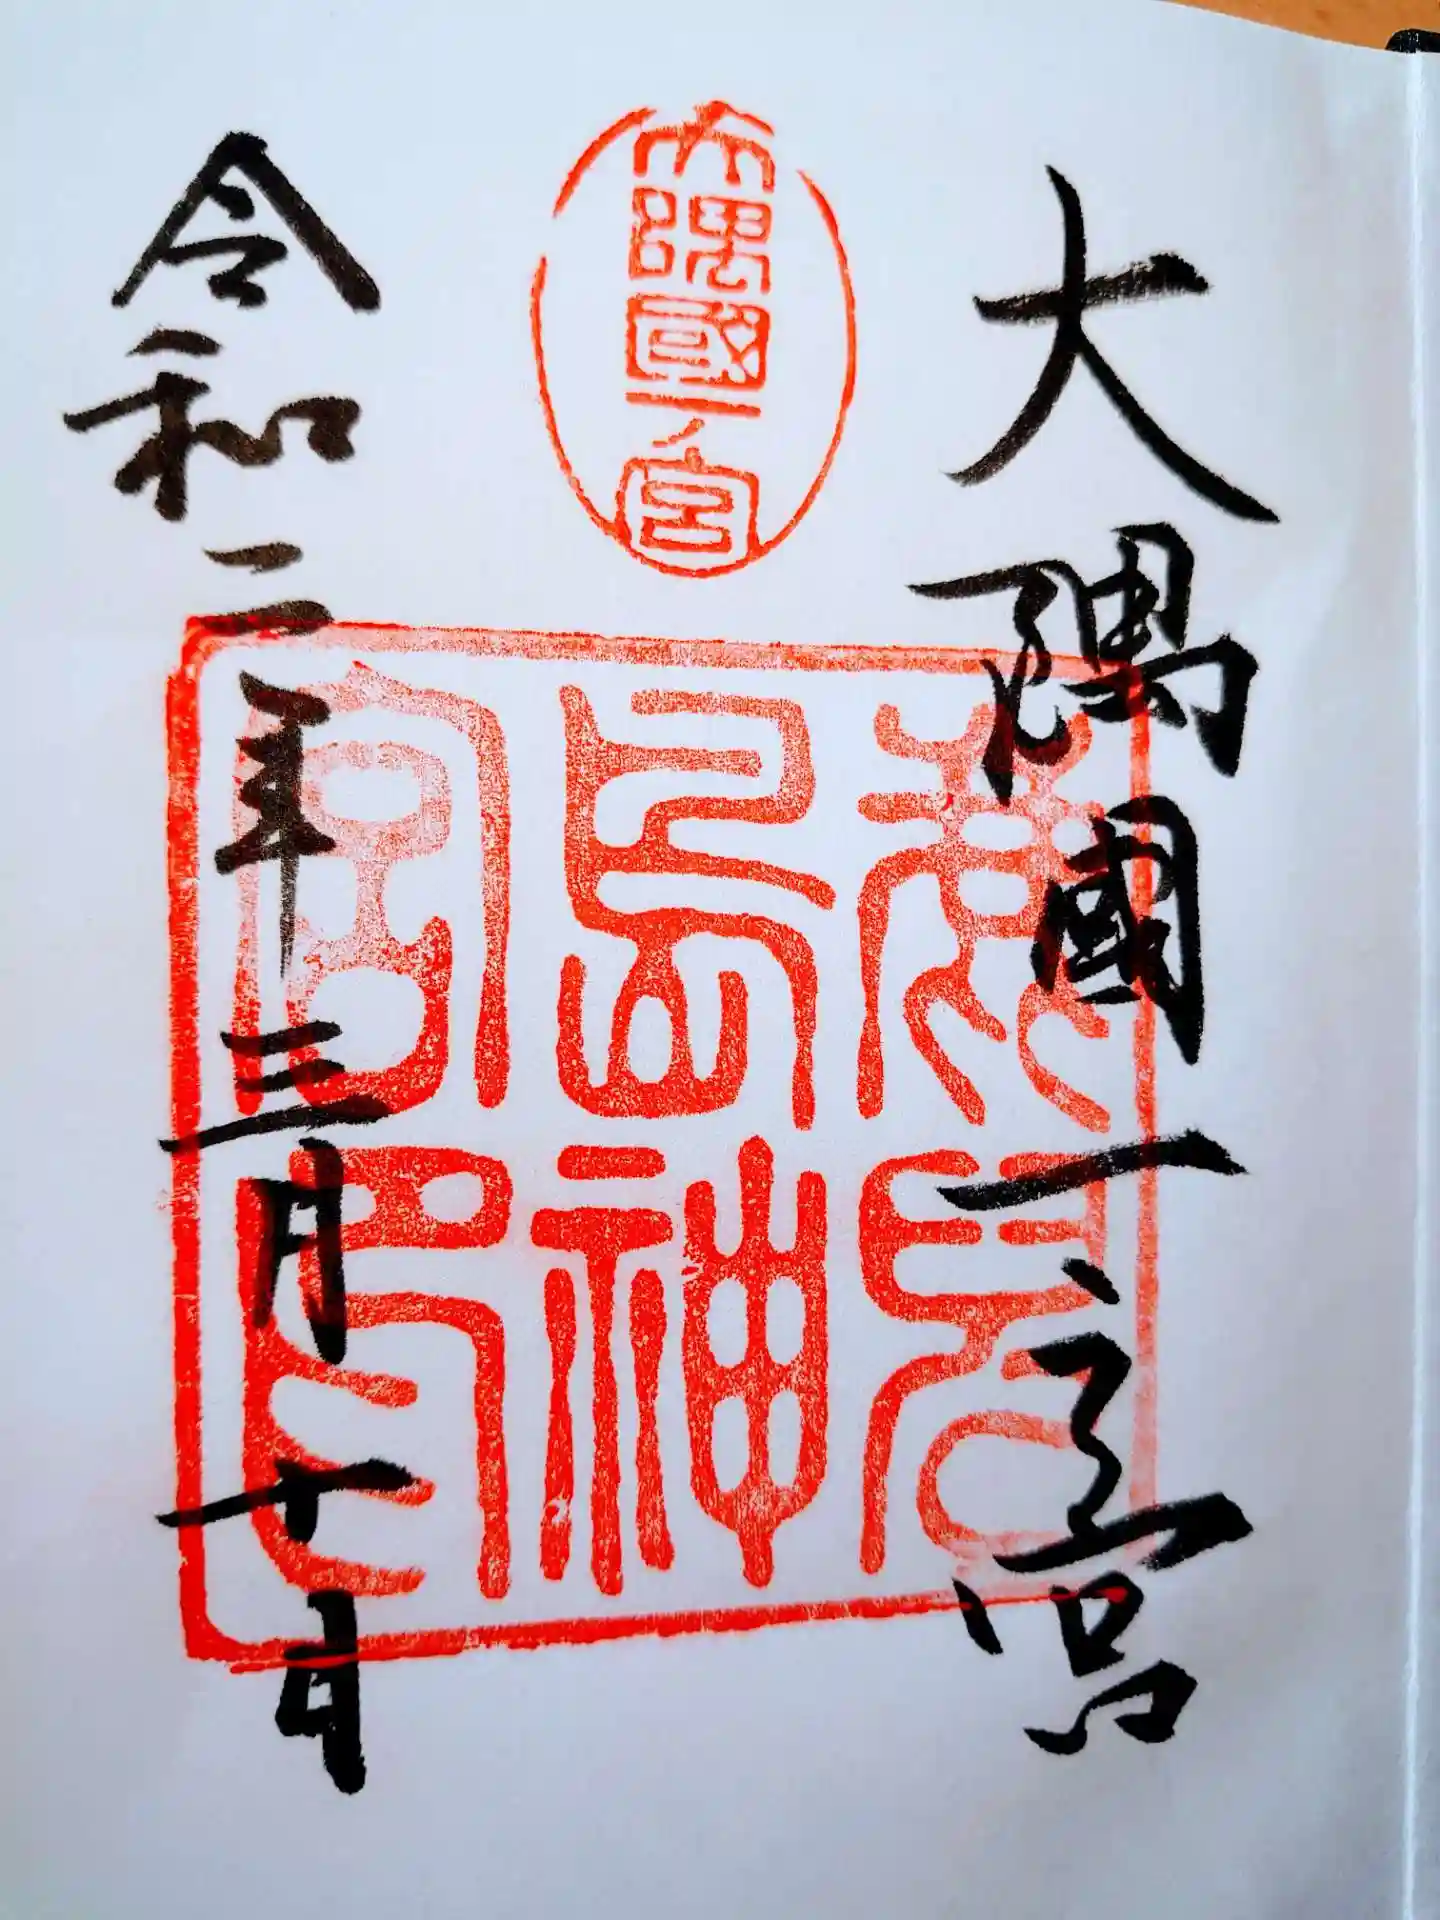 大隅國一之宮
大隅國一ノ宮
鹿児
島神
宮印
令和二年三月十日